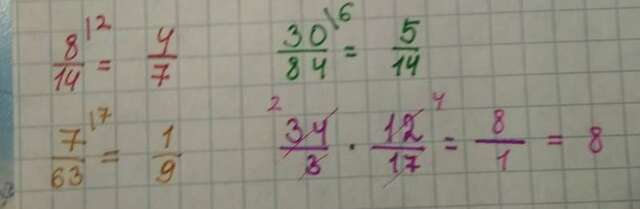 8/14 |2 = 4/7
30/84 |6 = 5/14
7/63 |7 = 1/9
2 34/3 · 12/17 4 = 8/1 = 8